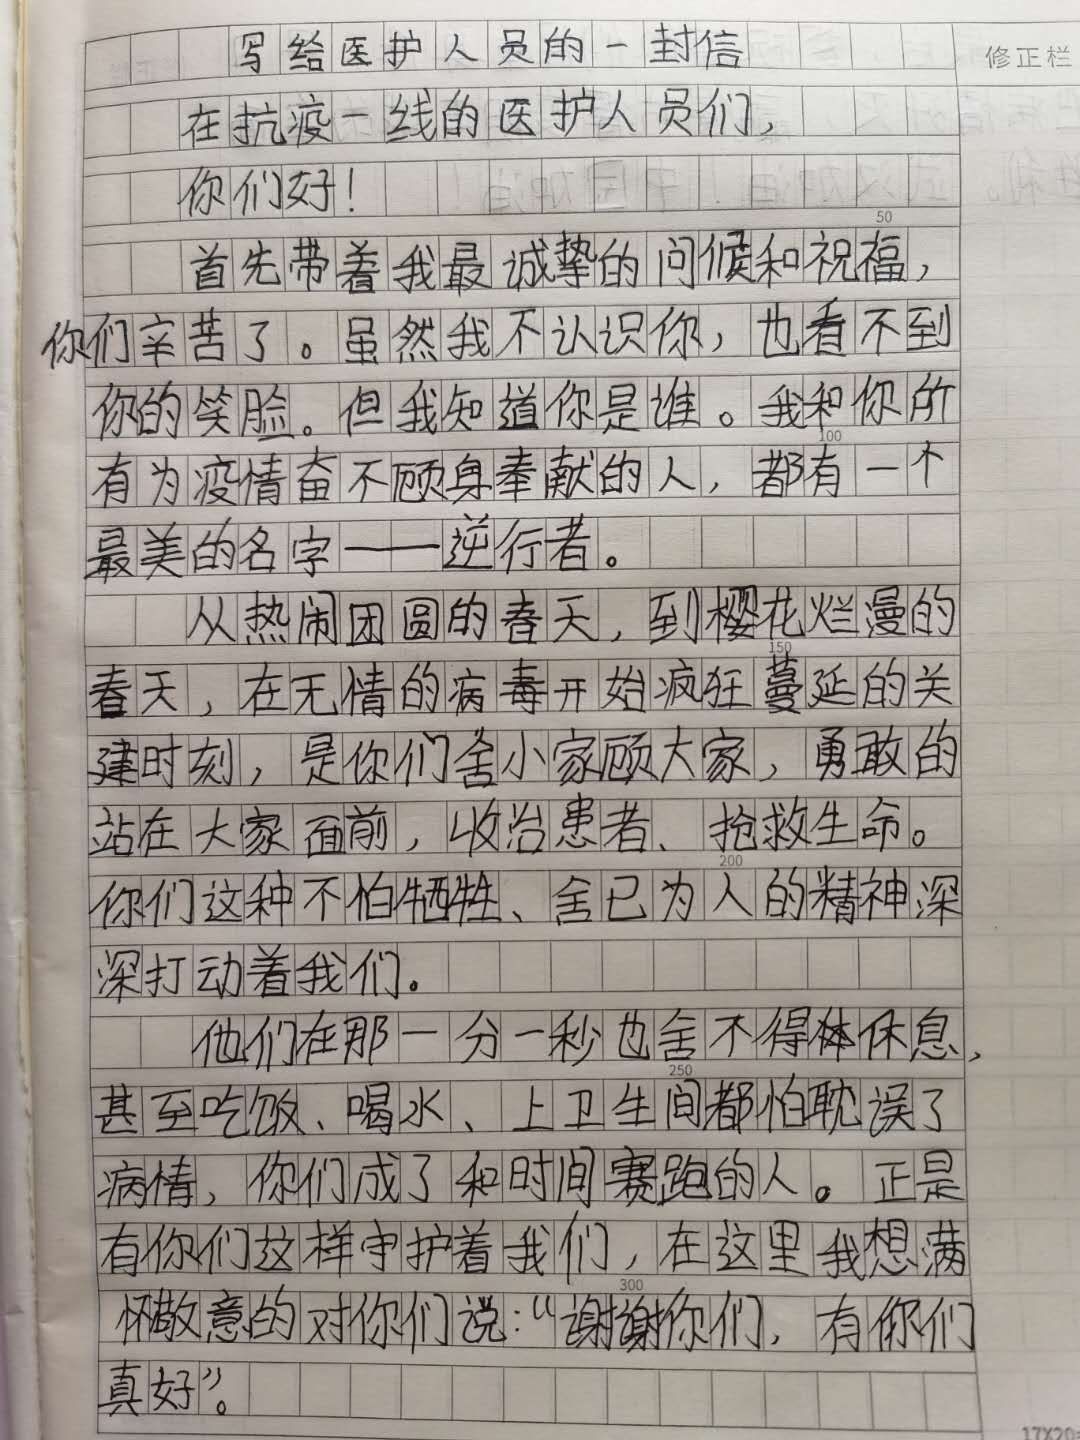 写给医护人员的一封信
修正栏
在抗疫一线的医护人员们，
你们好！
50
首先带着我最诚挚的问候和祝福，
你们辛苦了。虽然我不认识你，也看不到
你的笑脸。但我知道你是谁。我和你所
100
有为疫情奋不顾身奉献的人，都有一个
最美的名字——逆行者。
从热闹团圆的春天，到樱花烂漫的
150
春天，在无情的病毒开始疯狂蔓延的关
建时刻，是你们舍小家顾大家，勇敢的
站在大家面前，收治患者、抢救生命。
200
你们这种不怕牺牲、舍己为人的精神深
深打动着我们。
他们在那一分一秒也舍不得休息，
250
甚至吃饭、喝水、上卫生间都怕耽误了
病情，你们成了和时间赛跑的人。正是
有你们这样守护着我们，在这里我想满
300
怀敬意的对你们说：“谢谢你们，有你们
真好”。
17X20=